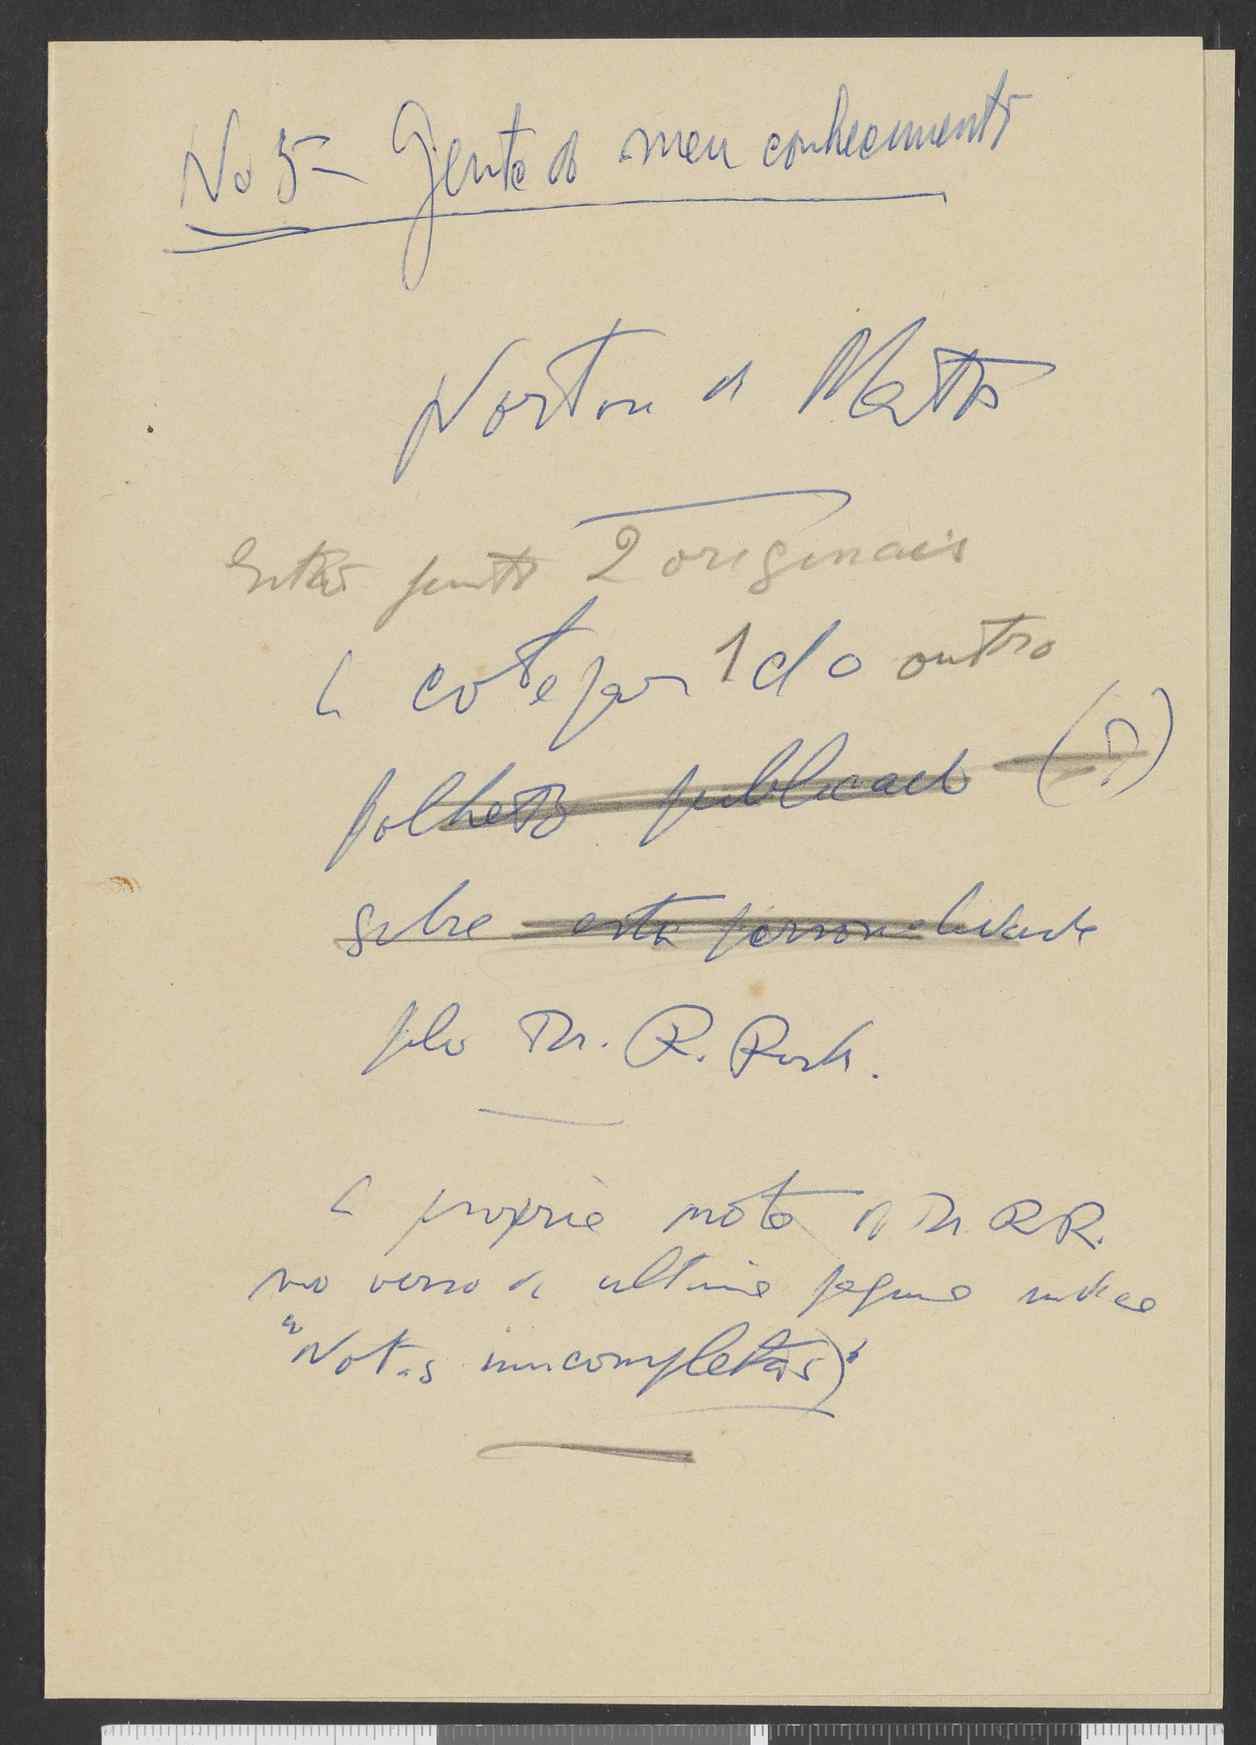 No 5 – Gente do meu conhecimento
Norton de Mattos
Estão junto 2 originais
a cotejar 1 do outro
folheto publicado (?)
sobre esta personalidade
pelo Dr. R. Rosa.
A propria nota do Dr. R R.
no verso da ultima pagina indica
"Notas inncompletas)"